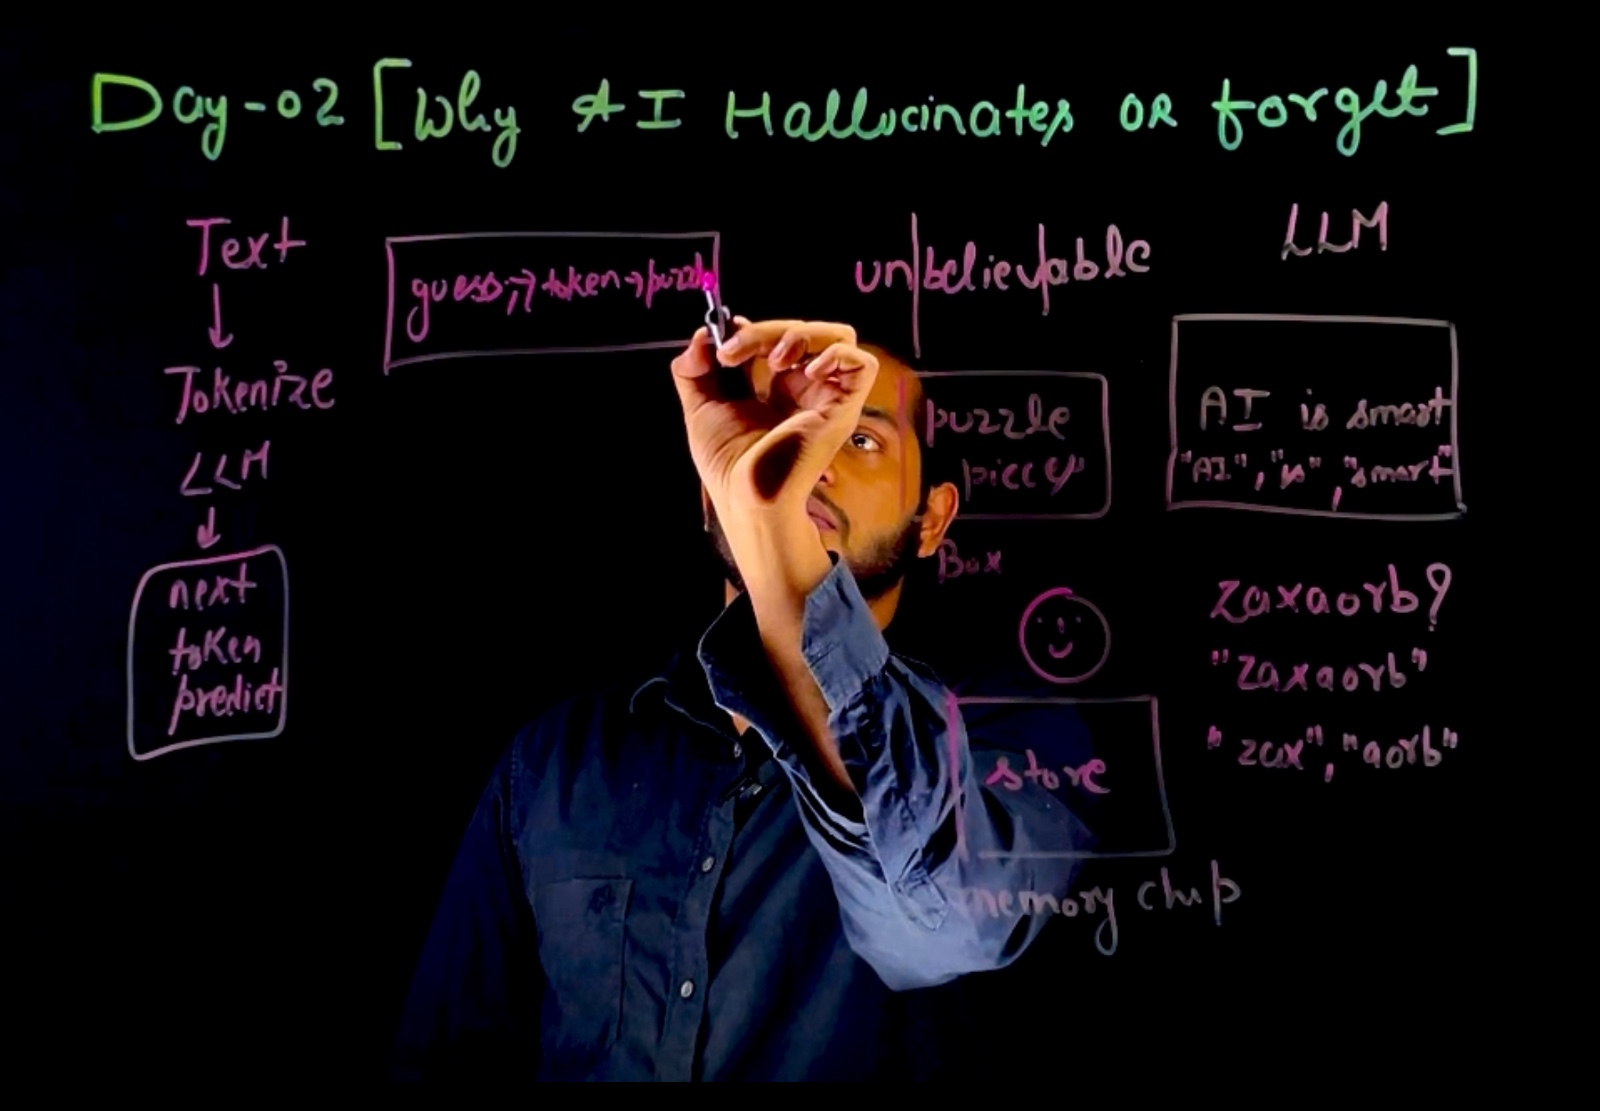 Day-02 [Why AI Hallucinates OR forget]
Text
Tokenize
LLM
next
token
predict
guess → token → puzzle
un|believ|able
puzzle
pieces
Box
store
memory chip
LLM
AI is smart
"AI", "is", "smart"
zaxaorb?
"zaxaorb"
"zax", "aorb"